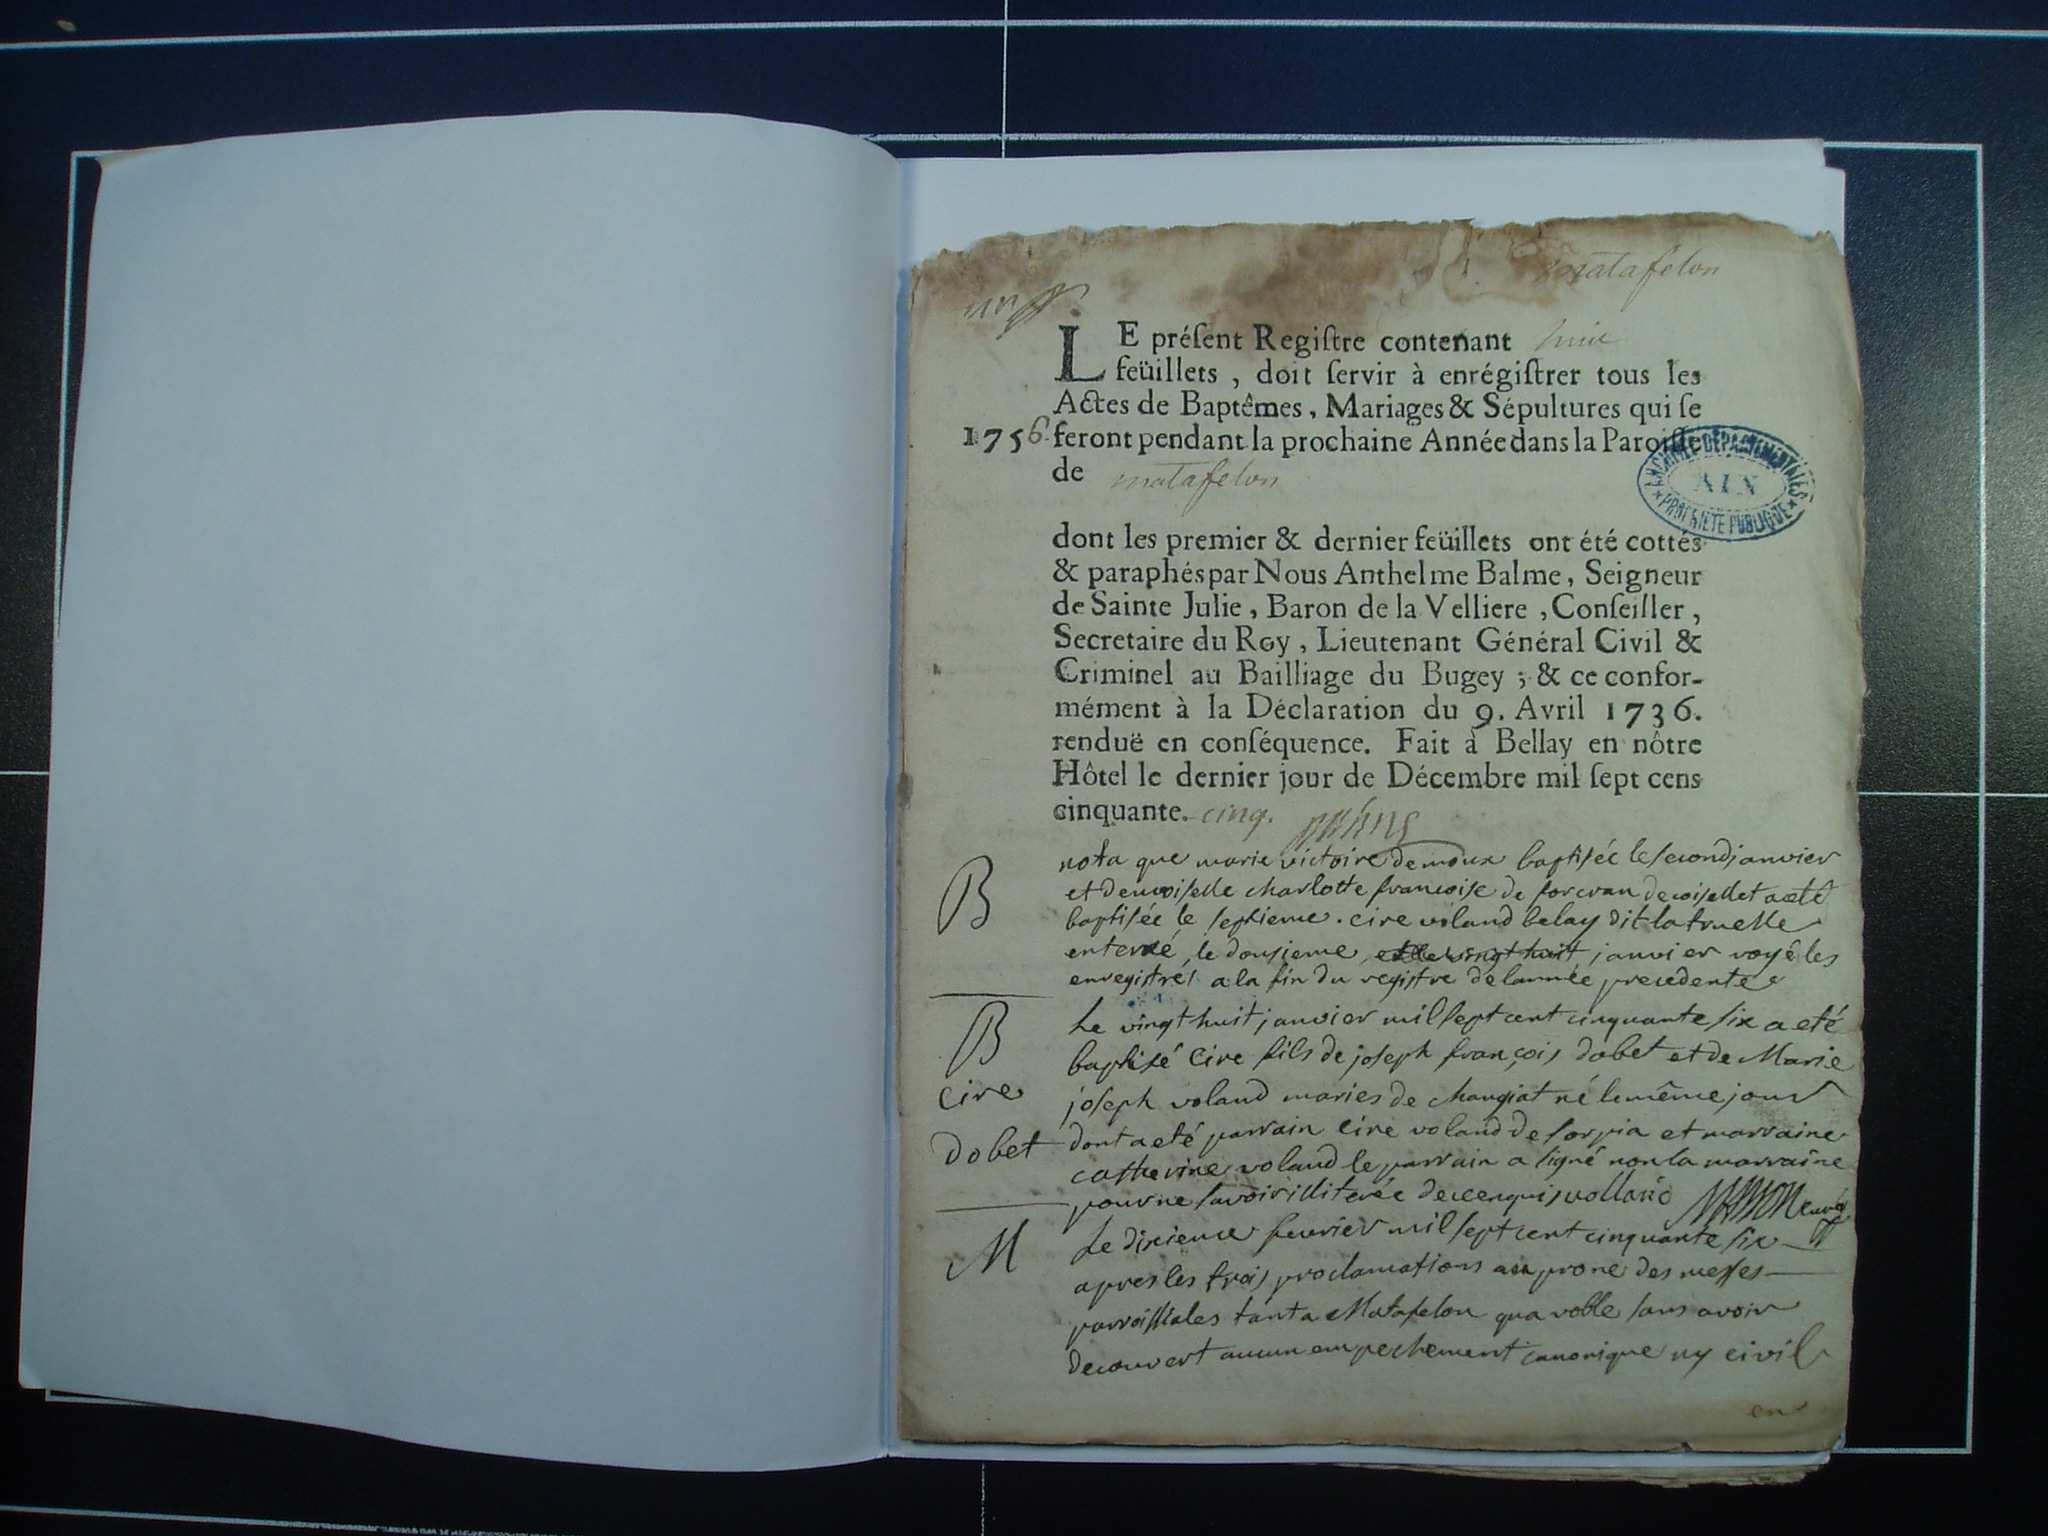 matafelon
LE préſent Regiſtre contenant huit
feüillets, doit ſervir à enrégiſtrer tous les
Actes de Baptêmes, Mariages & Sépultures qui ſe
1756 feront pendant la prochaine Année dans la Paroiſſe
de matafelon
ARCHIVES DEPARTEMENTALES
AIN
PROPRIETE PUBLIQUE
dont les premier & dernier feüillets ont été cottés
& paraphés par Nous Anthelme Balme, Seigneur
de Sainte Julie, Baron de la Velliere, Conſeiller,
Secretaire du Roy, Lieutenant Général Civil &
Criminel au Bailliage du Bugey; & ce confor-
mément à la Déclaration du 9. Avril 1736.
renduë en conſéquence. Fait à Bellay en nôtre
Hôtel le dernier jour de Décembre mil ſept cens
cinquante. cinq.
nota que marie victoire demoux baptisée le second janvier
B et demoiselle charlotte francoise de forcran de coiselet a eté
baptisée le septieme. cire voland belay dit la truelle
enterré, le dousieme et le vingt huit janvier voyé les
enregistrés a la fin du registre de lannée precedente
B Le vingt huit janvier mil sept cent cinquante six a eté
baptisé Cire fils de joseph françois dobet et de Marie
cire joseph voland maries de changiat né le même jour
dobet dont a eté parrain cire voland de sorpia et marraine
catherine voland le parrain a signé non la marraine
pour ne savoir illiterée de ce enquis volland curé
M Le dixieme fevrier mil sept cent cinquante six
apres les trois proclamations au prone des messes
parroissiales tant a Matafelon qua volle sans avoir
decouvert aucun empechement canonique ny civil
en